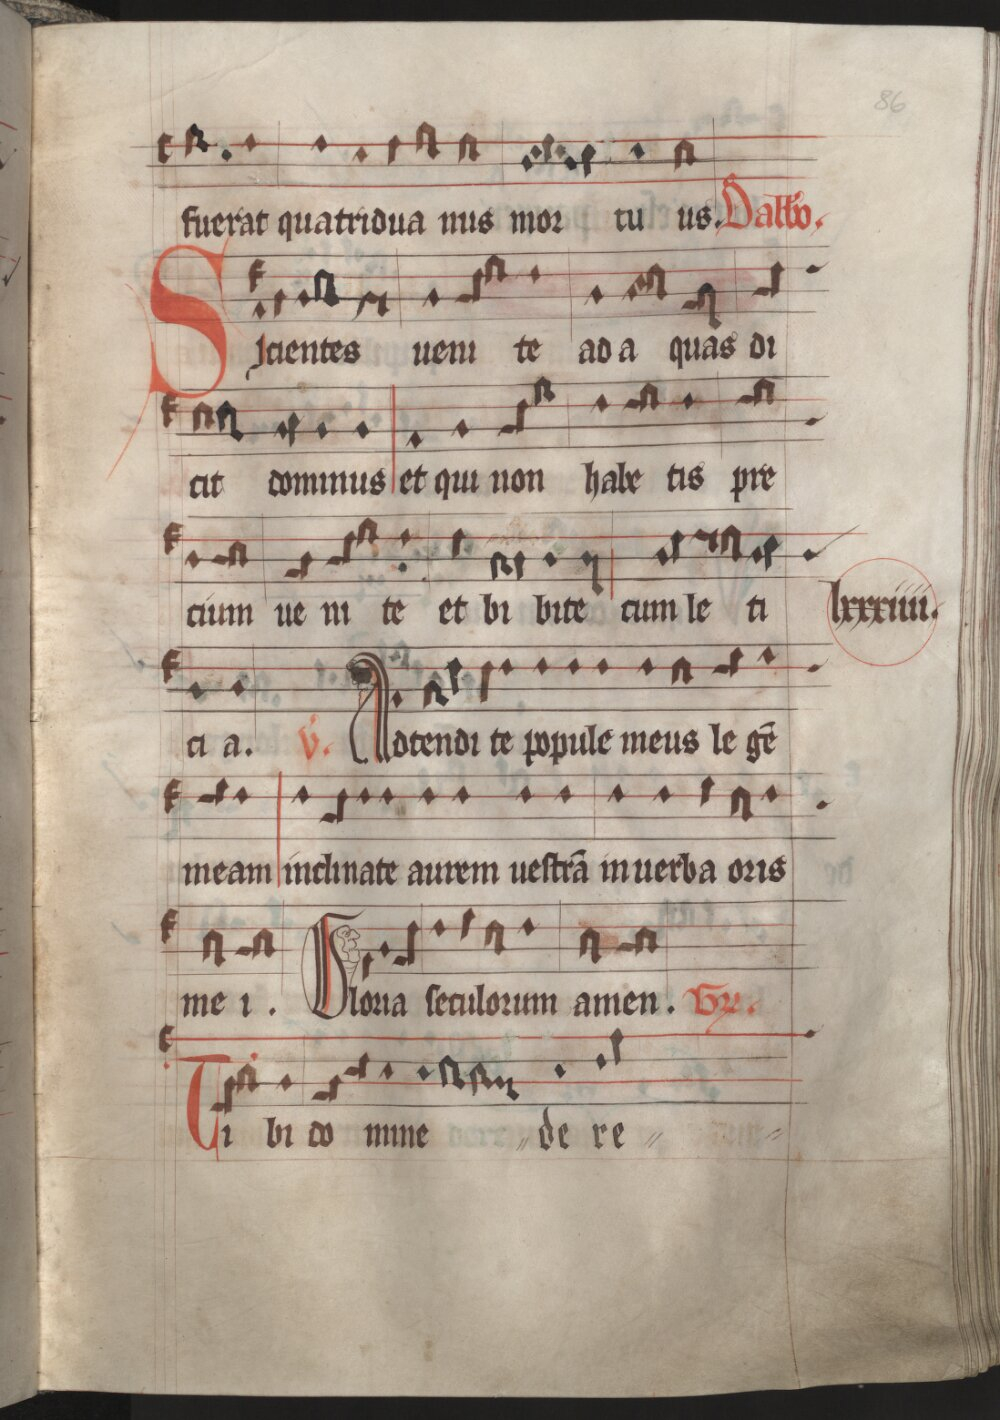 86
fuerat quatridua nus mor tu us. Sabbō.
Sicientes ueni te ad a quas di
cit dominus et qui non habe tis pre
cium ue ni te et bi bite cum le ti
lxxxiiii.
ci a. V. Adtendi te popule meus le gē
meam inclinate aurem uestrā in uerba oris
me i. Gloria seculorum amen. Gr.
Ti bi do mine de re